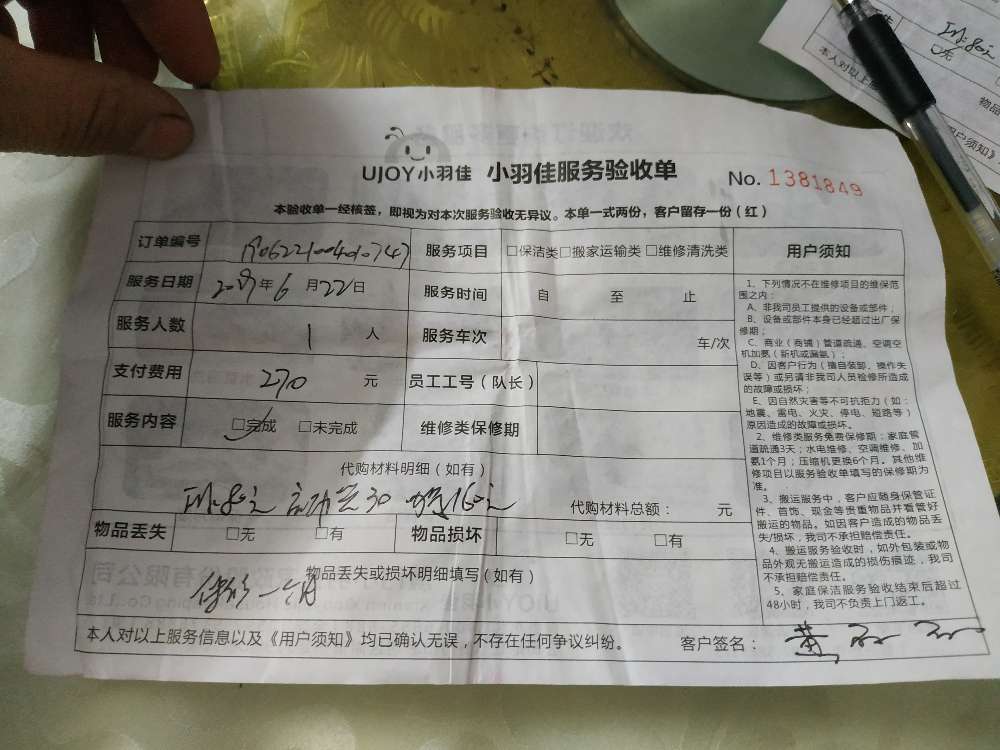 UJOY小羽佳 小羽佳服务验收单 No. 1381849
本验收单一经核签，即视为对本次服务验收无异议。本单一式两份，客户留存一份（红）
订单编号 服务项目 □保洁类□搬家运输类□维修清洗类
服务日期 年 6 月 22 日 服务时间 自 至 止
服务人数 1 人 服务车次 车/次
支付费用 270 元 员工工号（队长）
服务内容 □完成 □未完成 维修类保修期
代购材料明细（如有）
代购材料总额： 元
物品丢失 □无 □有 物品损坏 □无 □有
物品丢失或损坏明细填写（如有）
本人对以上服务信息以及《用户须知》均已确认无误，不存在任何争议纠纷。 客户签名： 黄
用户须知
1、下列情况不在维修项目的维保范
围之内：
A、非我司员工提供的设备或部件；
B、设备或部件本身已经超过出厂保
修期；
C、商业（商铺）管道疏通、空调空
机加氨（新机或漏氨）；
D、因客户行为（擅自装卸、操作失
误等）或另请非我司人员检修所造成
的故障或损坏；
E、因自然灾害等不可抗拒力（如：
地震、雷电、火灾、停电、短路等）
原因造成的故障或损坏。
2、维修类服务免费保修期：家庭管
道疏通3天；水电维修、空调维修、加
氨1个月；压缩机更换6个月。其他维
修项目以服务验收单填写的保修期为
准。
3、搬运服务中，客户应随身保管证
件、首饰、现金等贵重物品并看管好
搬运的物品。如因客户造成的物品丢
失/损坏，我司不承担赔偿责任。
4、搬运服务验收时，如外包装或物
品外观无搬运造成的损伤痕迹，我司
不承担赔偿责任。
5、家庭保洁服务验收结束后超过
48小时，我司不负责上门返工。
□无
本人对以上服
物品
用户须知》